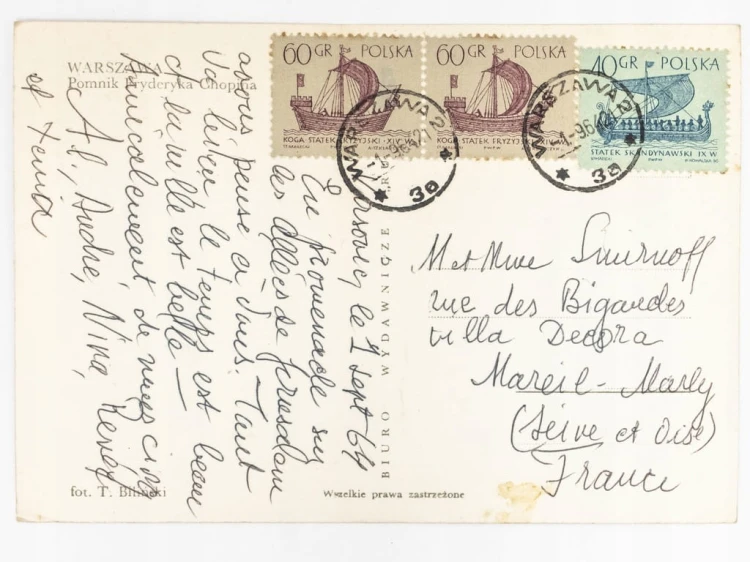 WARSZAWA
Pomnik Fryderyka Chopina
60 GR POLSKA
KOGA-STATEK FRYZYJSKI-XIV W.
60 GR POLSKA
KOGA-STATEK FRYZYJSKI-XIV W.
40 GR POLSKA
STATEK SKANDYNAWSKI IX W.
WARSZAWA 2
3e
WARSZAWA 2
3e
le 1 Sept 64
En promenade sur
les allées de
avons pensé à Vous. Tant
le temps est beau
et la ville est belle —
Amicalement de
A. L., André, Nina,
et
M et Mme Smirnoff
rue des Bigardes
villa Decora
Mareil-Marly
(Seine et Oise)
France
BIURO WYDAWNICZE
fot. T. Biliński
Wszelkie prawa zastrzeżone